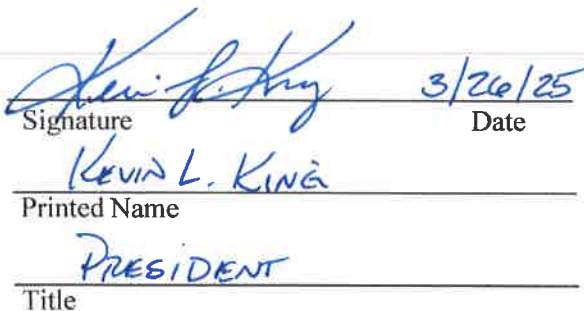 Kevin L. King 3/26/25
Signature Date
KEVIN L. KING
Printed Name
PRESIDENT
Title